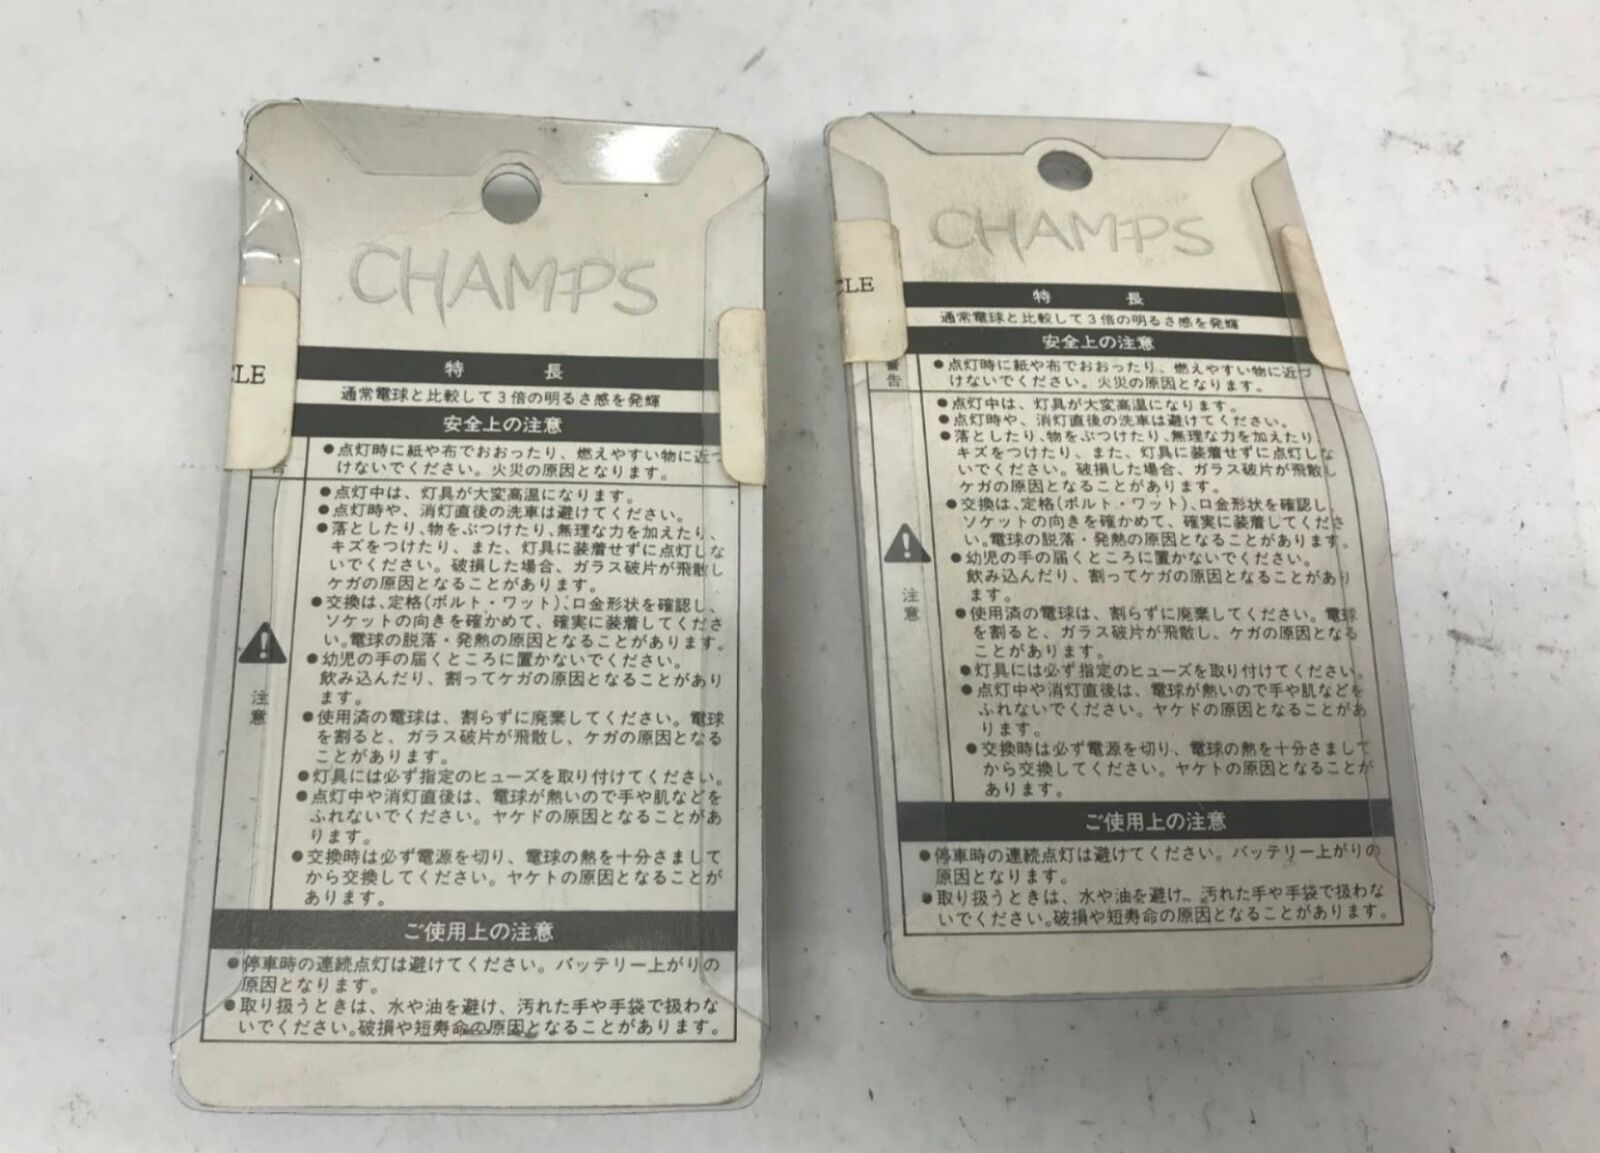 CHAMPS
CLE
特長
通常電球と比較して3倍の明るさ感を発輝
安全上の注意
告
●点灯時に紙や布でおおったり、燃えやすい物に近づ
けないでください。火災の原因となります。
●点灯中は、灯具が大変高温になります。
●点灯時や、消灯直後の洗車は避けてください。
●落としたり、物をぶつけたり、無理な力を加えたり、
キズをつけたり、また、灯具に装着せずに点灯しな
いでください。破損した場合、ガラス破片が飛散し
ケガの原因となることがあります。
●交換は、定格(ボルト・ワット)、口金形状を確認し、
ソケットの向きを確かめて、確実に装着してくださ
い。電球の脱落・発熱の原因となることがあります。
●幼児の手の届くところに置かないでください。
飲み込んだり、割ってケガの原因となることがあり
ます。
注意
●使用済の電球は、割らずに廃棄してください。電球
を割ると、ガラス破片が飛散し、ケガの原因となる
ことがあります。
●灯具には必ず指定のヒューズを取り付けてください。
●点灯中や消灯直後は、電球が熱いので手や肌などを
ふれないでください。ヤケドの原因となることがあ
ります。
●交換時は必ず電源を切り、電球の熱を十分さまして
から交換してください。ヤケトの原因となることが
あります。
ご使用上の注意
●停車時の連続点灯は避けてください。バッテリー上がりの
原因となります。
●取り扱うときは、水や油を避け、汚れた手や手袋で扱わな
いでください。破損や短寿命の原因となることがあります。
CHAMPS
CLE
特長
通常電球と比較して3倍の明るさ感を発輝
安全上の注意
警告
●点灯時に紙や布でおおったり、燃えやすい物に近づ
けないでください。火災の原因となります。
●点灯中は、灯具が大変高温になります。
●点灯時や、消灯直後の洗車は避けてください。
●落としたり、物をぶつけたり、無理な力を加えたり、
キズをつけたり、また、灯具に装着せずに点灯しな
いでください。破損した場合、ガラス破片が飛散し
ケガの原因となることがあります。
●交換は、定格(ボルト・ワット)、口金形状を確認し、
ソケットの向きを確かめて、確実に装着してくださ
い。電球の脱落・発熱の原因となることがあります。
●幼児の手の届くところに置かないでください。
飲み込んだり、割ってケガの原因となることがあり
ます。
注意
●使用済の電球は、割らずに廃棄してください。電球
を割ると、ガラス破片が飛散し、ケガの原因となる
ことがあります。
●灯具には必ず指定のヒューズを取り付けてください。
●点灯中や消灯直後は、電球が熱いので手や肌などを
ふれないでください。ヤケドの原因となることがあ
ります。
●交換時は必ず電源を切り、電球の熱を十分さまして
から交換してください。ヤケトの原因となることが
あります。
ご使用上の注意
●停車時の連続点灯は避けてください。バッテリー上がりの
原因となります。
●取り扱うときは、水や油を避け、汚れた手や手袋で扱わな
いでください。破損や短寿命の原因となることがあります。